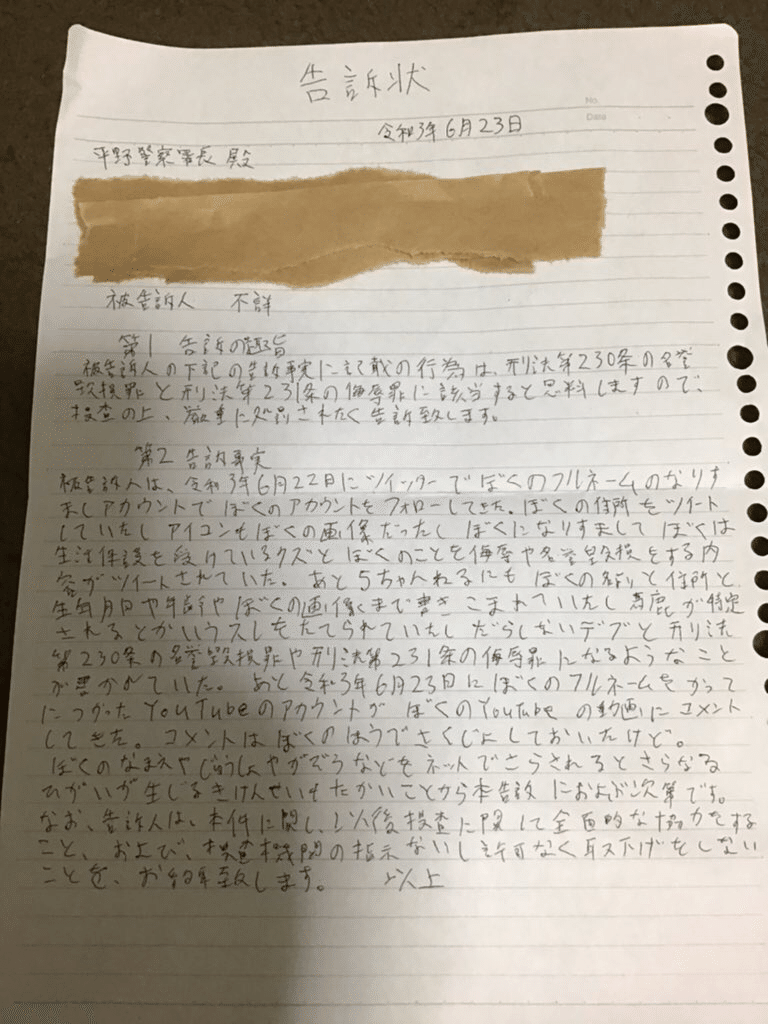 告訴状
No.
Date
令和3年6月23日
平野警察署長 殿
被告訴人 不詳
第1 告訴の趣旨
被告訴人の下記の告訴事実に記載の行為は、刑法第230条の名誉
毀損罪と刑法第231条の侮辱罪に該当すると思料しますので、
捜査の上、厳重に処罰されたく告訴致します。
第2 告訴事実
被告訴人は、令和3年6月22日にツイッターでぼくのフルネームのなりす
ましアカウントでぼくのアカウントをフォローしてきた。ぼくの住所をツイート
していたしアイコンもぼくの画像だったし ぼくになりすまして ぼくは
生活保護を受けているクズと ぼくのことを侮辱や名誉毀損をする内
容がツイートされていた。あと5ちゃんねるにも ぼくの名前と住所と
生年月日や年齢やぼくの画像まで書きこまれていたし 馬鹿が特定
されるとかいうスレをたてられていたし だらしないデブと 刑法
第230条の名誉毀損罪や刑法第231条の侮辱罪になるようなこと
が書かれていた。あと令和3年6月23日にぼくのフルネームをかって
につかったYouTubeのアカウントが ぼくのYouTubeの動画にコメント
してきた。コメントはぼくのほうでさくじょしておいたけど。
ぼくのなまえやじゅうしょやがぞうなどをネットでさらされるとさらなる
ひがいが生じるきけんせいもたかいことから本告訴におよぶ次第です。
なお、告訴人は、本件に関し、以後捜査に関して全面的な協力をする
こと、および、捜査機関の指示ないし許可なく取下げをしない
ことを、お約束致します。 以上